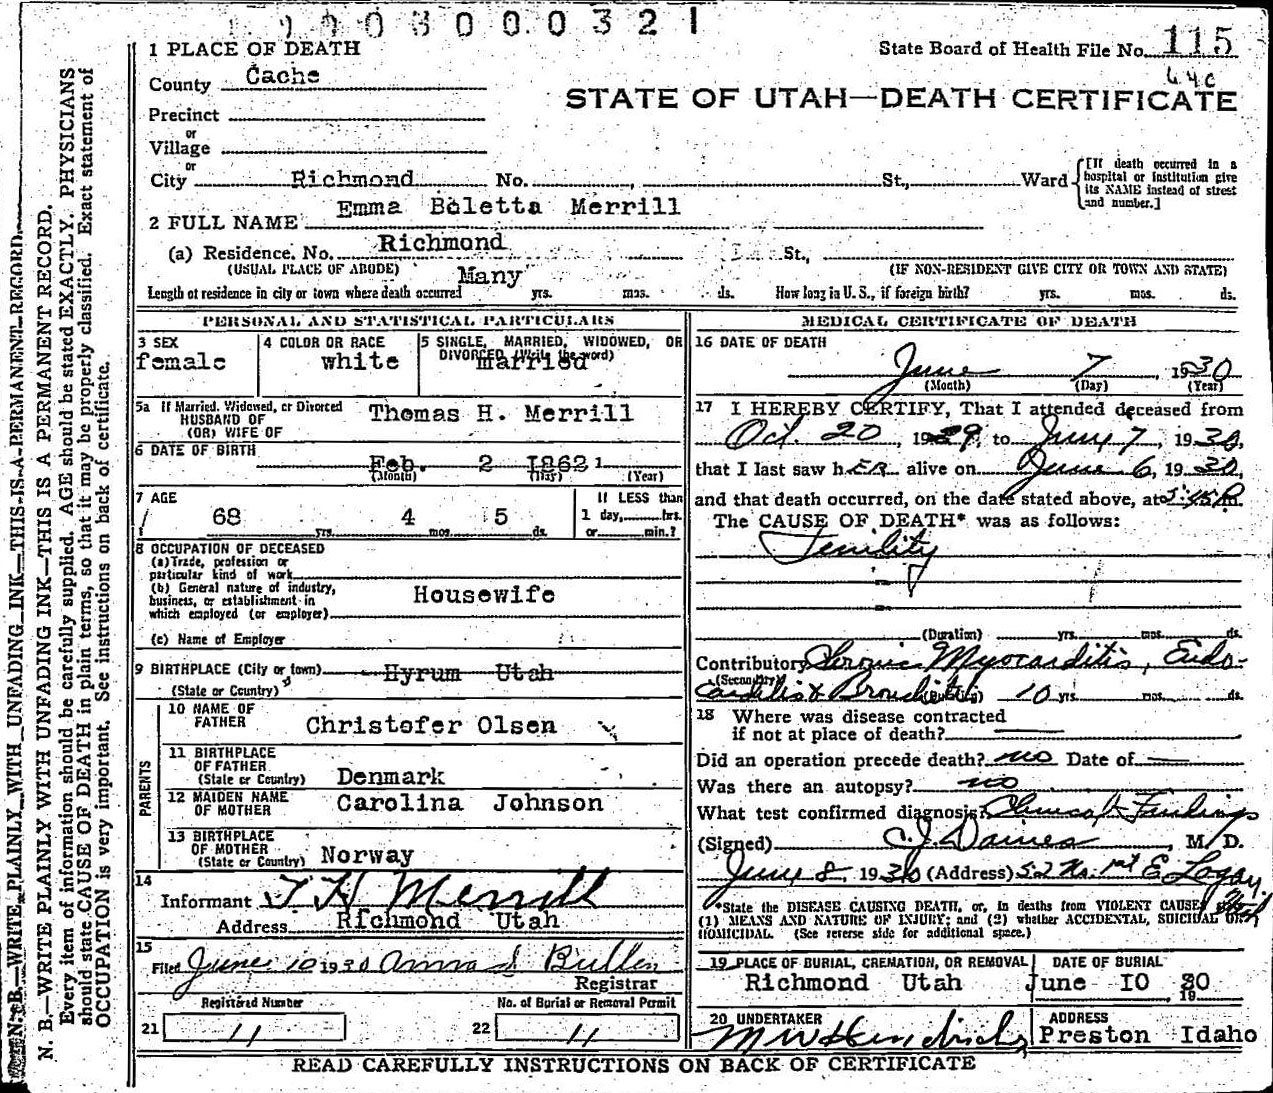 1 9 3 0 8 0 0 0 3 2 1
1 PLACE OF DEATH
State Board of Health File No. 115
64c
County Cache
STATE OF UTAH—DEATH CERTIFICATE
Precinct
or
Village
or
City Richmond No. , St., Ward
[If death occurred in a hospital or institution give its NAME instead of street and number.]
2 FULL NAME Emma Boletta Merrill
(a) Residence. No. Richmond St.,
(USUAL PLACE OF ABODE) (IF NON-RESIDENT GIVE CITY OR TOWN AND STATE)
Length of residence in city or town where death occurred Many yrs. mos. ds. How long in U. S., if foreign birth? yrs. mos. ds.
PERSONAL AND STATISTICAL PARTICULARS
3 SEX
female
4 COLOR OR RACE
white
5 SINGLE, MARRIED, WIDOWED, OR
DIVORCED (Write the word)
married
5a If Married, Widowed, or Divorced
HUSBAND OF
(OR) WIFE OF
Thomas H. Merrill
6 DATE OF BIRTH
Feb. 2 1862
(Month) (Day) (Year)
7 AGE
68 yrs. 4 mos. 5 ds.
If LESS than
1 day, hrs.
or min.?
8 OCCUPATION OF DECEASED
(a) Trade, profession or
particular kind of work
(b) General nature of industry,
business, or establishment in
which employed (or employer)
Housewife
(c) Name of Employer
9 BIRTHPLACE (City or town) Hyrum Utah
(State or Country)
PARENTS
10 NAME OF
FATHER Christofer Olsen
11 BIRTHPLACE
OF FATHER
(State or Country) Denmark
12 MAIDEN NAME
OF MOTHER Carolina Johnson
13 BIRTHPLACE
OF MOTHER
(State or Country) Norway
14
Informant T H Merrill
Address Richmond Utah
15
Filed June 10 1930 Anna S Bullen
Registrar
Registered Number
21 11
No. of Burial or Removal Permit
22 11
MEDICAL CERTIFICATE OF DEATH
16 DATE OF DEATH
June 7, 1930
(Month) (Day) (Year)
17 I HEREBY CERTIFY, That I attended deceased from
Oct. 20, 1929, to June 7, 1930,
that I last saw hER alive on June 6, 1930,
and that death occurred, on the date stated above, at 5:45 P m.
The CAUSE OF DEATH* was as follows:
Senility
(Duration) yrs. mos. ds.
Contributory Chronic Myocarditis, Endo-
(Secondary)
carditis & Bronchitis (Duration) 10 yrs. mos. ds.
18 Where was disease contracted
if not at place of death?
Did an operation precede death? no Date of
Was there an autopsy? no
What test confirmed diagnosis? Clinical Findings
(Signed) C. J. Daines, M. D.
June 8, 1930 (Address) 52 No. 1st E Logan, Utah
*State the DISEASE CAUSING DEATH, or, in deaths from VIOLENT CAUSES,
(1) MEANS AND NATURE OF INJURY; and (2) whether ACCIDENTAL, SUICIDAL OR
HOMICIDAL. (See reverse side for additional space.)
19 PLACE OF BURIAL, CREMATION, OR REMOVAL
Richmond Utah
DATE OF BURIAL
June 10 1930
20 UNDERTAKER
M W Hendricks
ADDRESS
Preston Idaho
READ CAREFULLY INSTRUCTIONS ON BACK OF CERTIFICATE
N. B.—WRITE PLAINLY WITH UNFADING INK—THIS IS A PERMANENT RECORD.
N. B.—WRITE PLAINLY WITH UNFADING INK—THIS IS A PERMANENT RECORD.
Every item of information should be carefully supplied. AGE should be stated EXACTLY. PHYSICIANS
should state CAUSE OF DEATH in plain terms, so that it may be properly classified. Exact statement of
OCCUPATION is very important. See instructions on back of certificate.